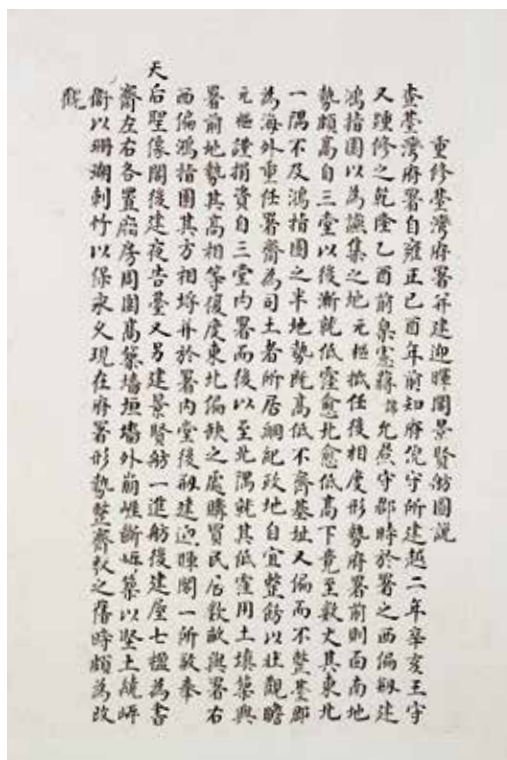 重修臺灣府署并建迎暉閣景賢舫圖說
查臺灣府署自雍正己酉年前知府倪守所建越二年辛亥王守
又踵修之乾隆乙酉前臬憲蔣諱允焄守郡時於署之西偏剏建
鴻指園以為讌集之地元樞抵任後相度形勢府署前則面南地
勢頗高自三堂以後漸就低窪愈北愈低高下竟至数丈其東北
一隅不及鴻指園之半地勢既高低不齊基址又偏而不整臺郡
為海外重任署齋為司土者所居綱紀政地自宜整飭以壯觀瞻
元樞謹捐資自三堂內署而後以至北隅就其低窪用土填築與
署前地勢其高相等復度東北偏缺之處購買民居数畝與署右
西偏鴻指園其方相埒并於署內堂後剏建迎暉閣一所敬奉
天后聖像閣後建夜告臺又另建景賢舫一進舫後建屋七楹為書
齋左右各置廂房周圍高築墻垣墻外崩崕斷坵築以堅土繞岍
衛以珊瑚刺竹以保永久現在府署形勢整齊較之舊時頗為改
觀